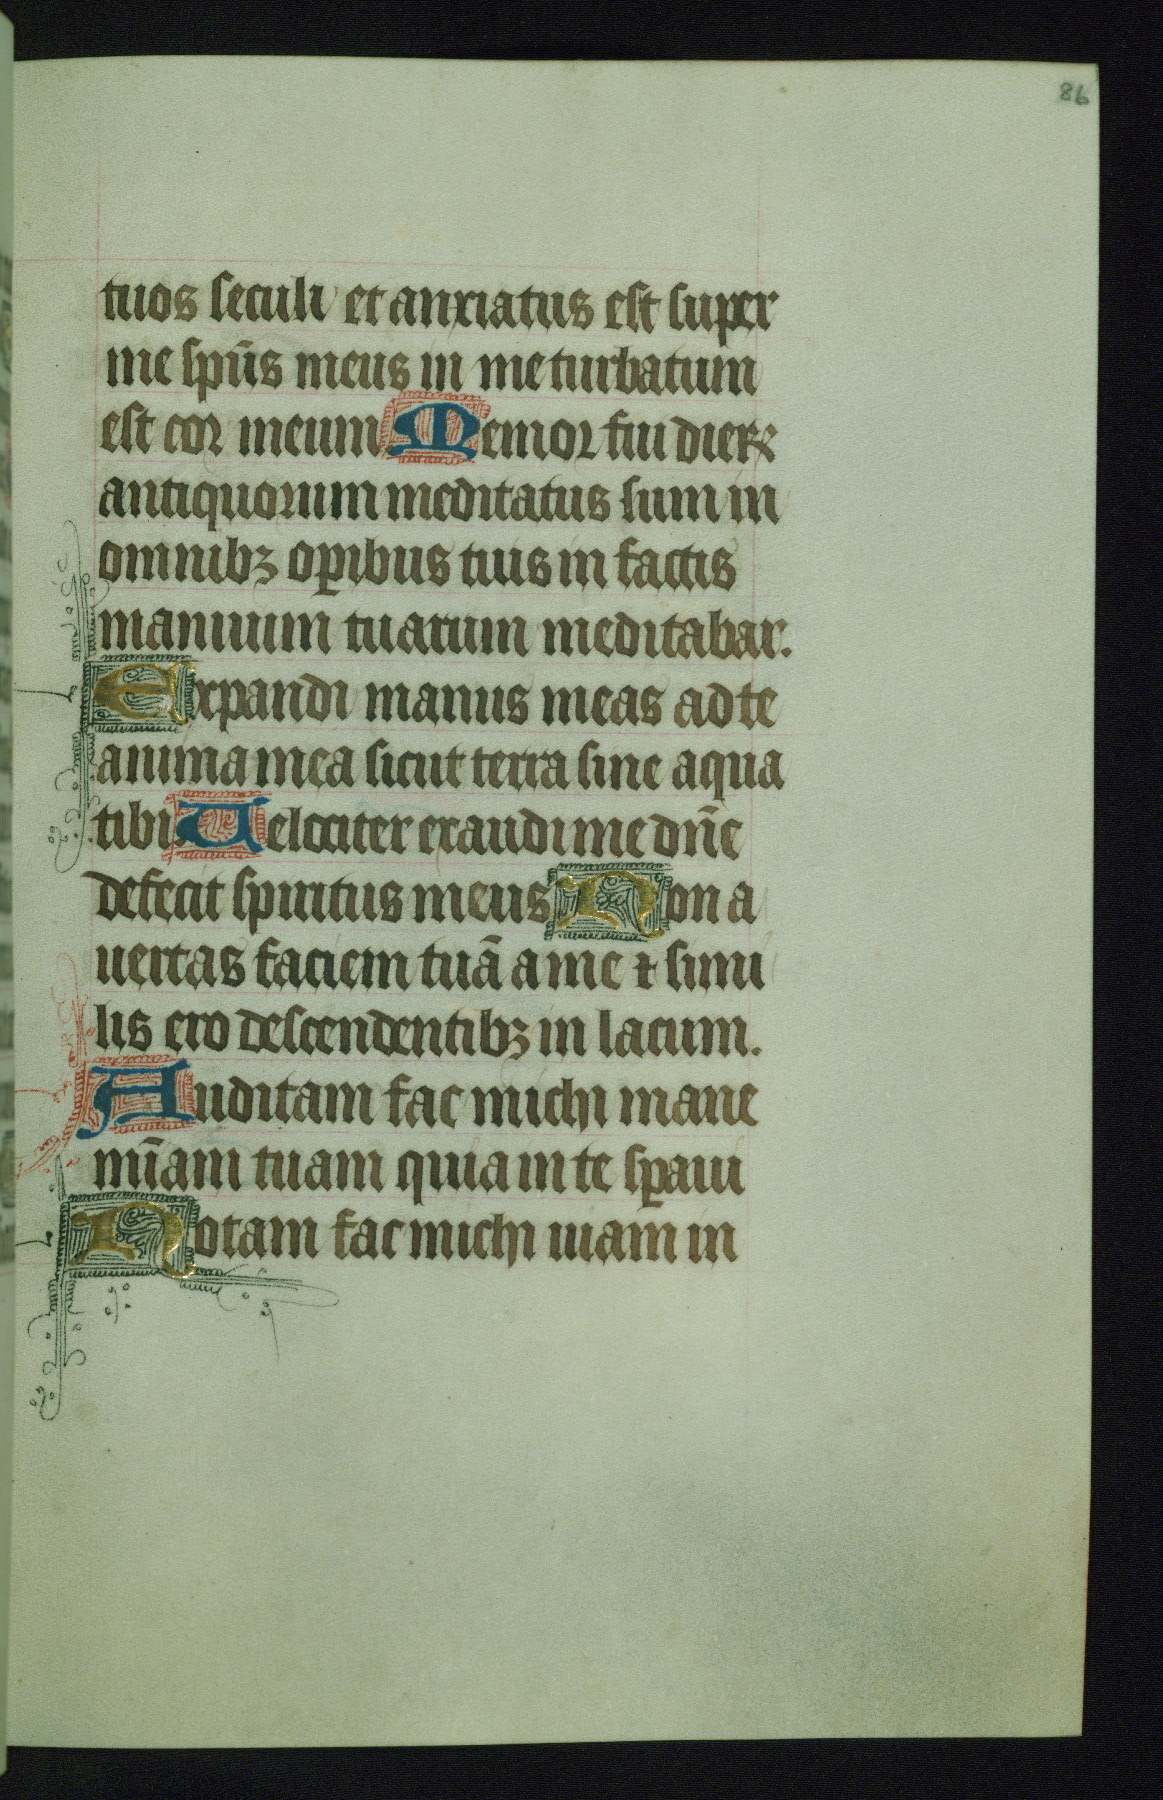 86
tuos seculi et anxiatus est super
me spūs meus in me turbatum
est cor meum Memor fui dieꝝ
antiquorum meditatus sum in
omnibꝫ oꝑibus tuis in factis
manuum tuarum meditabar.
Expandi manus meas ad te
anima mea sicut terra sine aqua
tibi Uelociter exaudi me dñe
defecit spiritus meus Non a
uertas faciem tuā a me ⁊ simi
lis ero descendentibꝫ in lacum.
Auditam fac michi mane
mīam tuam quia in te sꝑaui
Notam fac michi uiam in